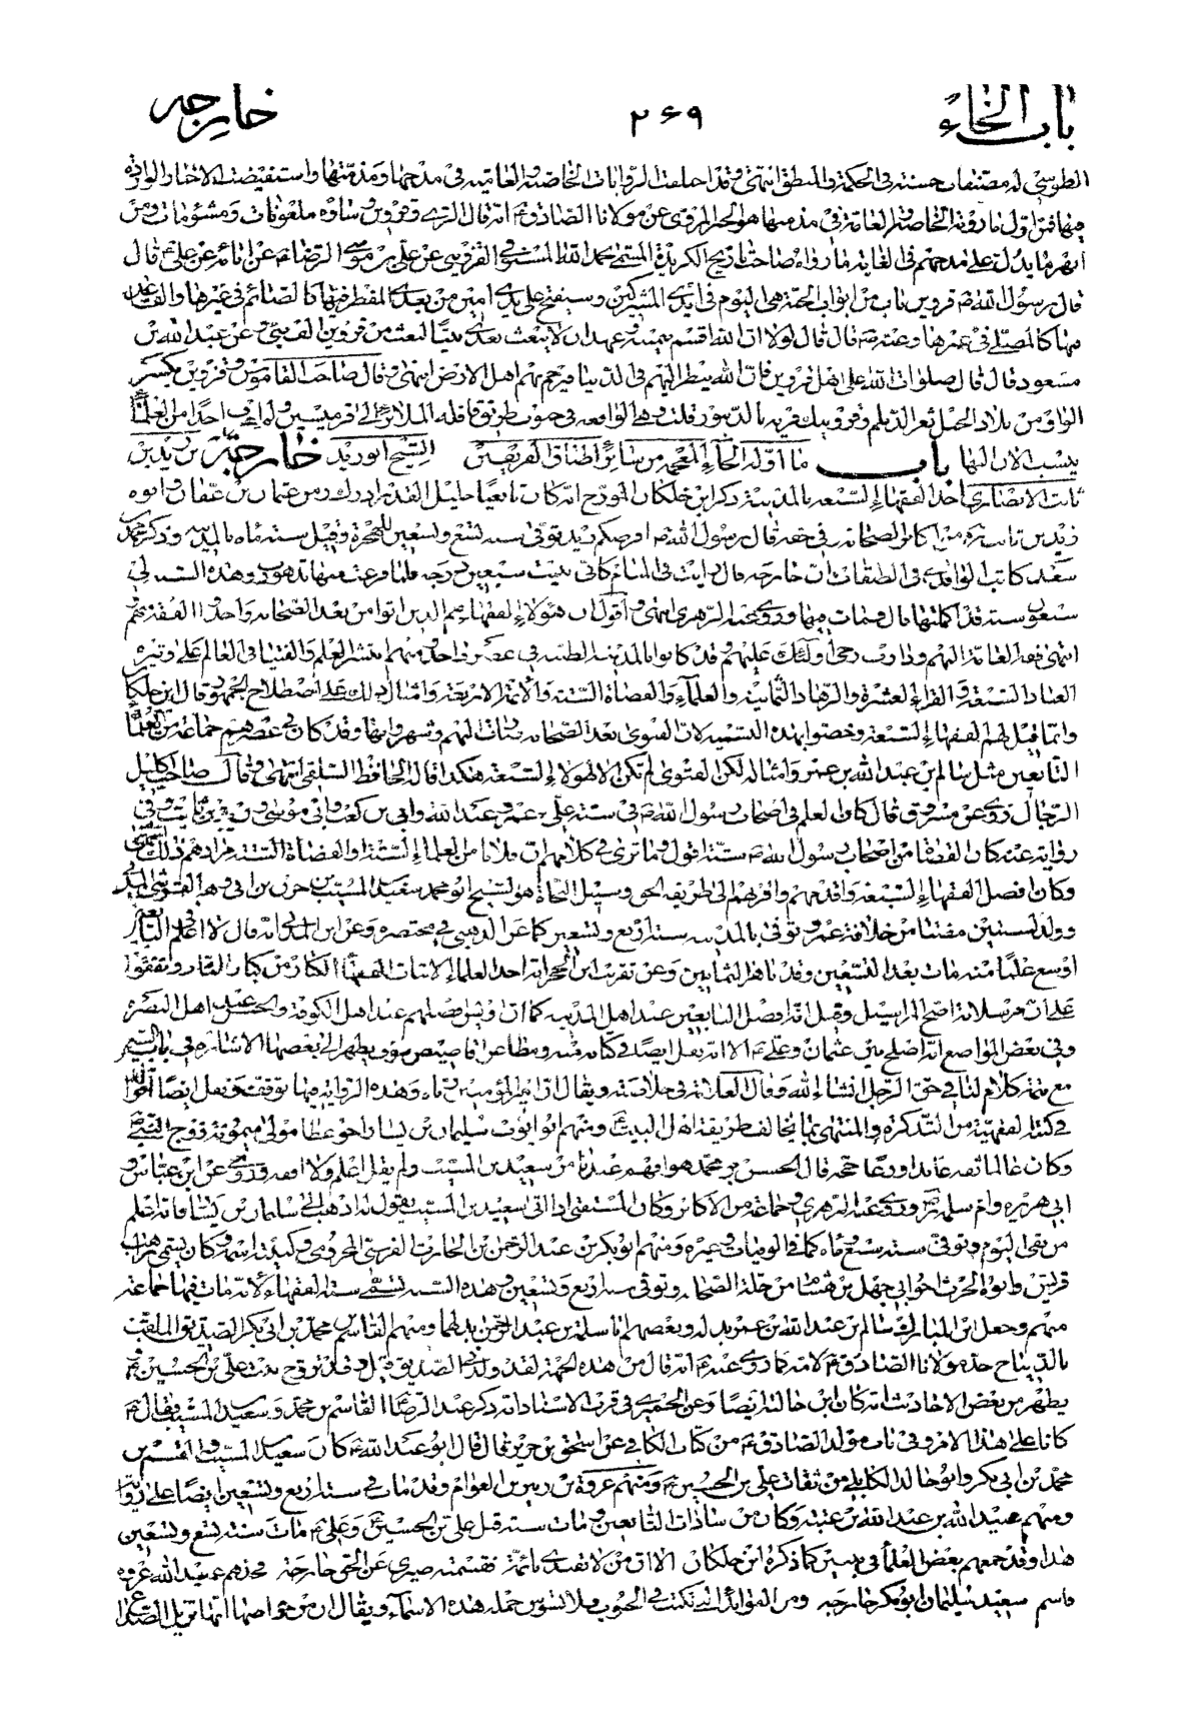 باب الخاء ٢۶٩ خارجه
الطوسي له مصنفات حسنة في الحكمة والمنطق انتهى وقد اختلفت الروايات الخاصية والعامية في مدحها ومذمتها واستفيضت الاخبار الواردة
فيها فمن اول ما روته الخاصة والعامة في مذمتها هو الخبر المروي عن مولانا الصادق ع انه قال الري وقزوين وساوه ملعونات ومشئومات ومن
اظهر ما يدل على مدحهم في الغاية ما رواه صاحب تاريخ الكزيدة المسمى بحمد الله المستوفي القزويني عن علي بن موسى الرضا ع عن ابائه عن علي ع قال
قال رسول الله ص قزوين باب من ابواب الجنة هي اليوم في ايدي المشركين وسيفتح على يدي امتي من بعدي المفطر فيها كالصائم في غيرها والقاعد
فيها كالمصلي في غيرها وعنه ص قال قال لولا ان الله اقسم بيمينه وعهد ان لا يبعث بعدي نبيا لبعث من قزوين الف نبي وعن عبد الله بن
مسعود قال قال صلوات الله على اهل قزوين فان الله ينظر اليهم في الدنيا فيرحم بهم اهل الارض انتهى وقال صاحب القاموس وقزوين بكسر
الواو من بلاد الجبل ثغر الديلم وقزوينك قرية بالدينور قلت وهي الواقعة في جنوب طريق قافلة الى قرميسين ولم اعرف احدا من العلماء
ينسب الان اليها باب ما اوله الخاء المعجمة من سائر اطناق الفريقين الشيخ ابو زيد خارجة بن زيد بن
ثابت الانصاري احد الفقهاء السبعة بالمدينة ذكر ابن خلكان المورخ انه كان تابعيا جليل القدر ادرك زمن عثمان بن عفان وابوه
زيد بن ثابت من اكابر الصحابة وفي حقه قال رسول الله ص افرضكم زيد توفي سنة تسع وتسعين للهجرة وقيل سنة ماه بالمدينة وذكر محمد
سعد كاتب الواقدي في الطبقات ان خارجة قال رايت في المنام كاني بنيت سبعين درجة فلما فرغت منها تدهورت وهذه السنة لي
سبعون سنة قد اكملتها قال فمات فيها وروى عنه الزهري انتهى واقول ان هؤلاء الفقهاء هم الذين اتوا من بعد الصحابة واحدوا الفقه عنهم
انتهى فقه العامة اليهم وقد كانوا بالمدينة الطيبة في عصر واحد ومنهم انتشر العلم والفتيا في العالم على وتيرة
العباد السبعة والقراء العشرة والزهاد الثمانية والعلماء والقضاة الستة والائمة الاربعة وامثال ذلك على اصطلاح الجمهور وقال ابن خلكان
وانما قيل لهم الفقهاء السبعة وخصوا بهذه التسمية لان الفتوى بعد الصحابة صارت اليهم وشهروا بها وقد كان في عصرهم جماعة من العلماء
التابعين مثل سالم بن عبد الله بن عمر وامثاله لكن الفتوى لم تكن الا لهولاء السبعة هكذا قال الحافظ السلفي انتهى وقال صاحب اكليل
الرجال روي عن مسروق قال كان العلم في اصحاب رسول الله ص في ستة علي ع وعمر وعبد الله وابي بن كعب وابي موسى وزيد بن ثابت وفي
رواية عنه كان القضاة من اصحاب رسول الله ص ستة اقول وما ترى في كلامهم ان فلانا من العلماء الستة والقضاة الستة مرادهم ذلك انتهى
وكان افضل الفقهاء السبعة واقدمهم واقربهم الى طريقة الحق وسبيل النجاة هو الشيخ ابو محمد سعيد بن المسيب بن حزن بن ابي وهب القرشي المدني
وولد لسنتين مضتا من خلافة عمر وتوفي بالمدينة سنة اربع وتسعين كما عن الذهبي في مختصره وعن ابن المديني انه قال لا اعلم في التابعين
اوسع علما منه مات بعد التسعين وقد ناهز الثمانين وعن تقريب ابن حجر انه احد العلماء الاثبات الفقهاء الكبار من كبار الثانية واتفقوا
على ان مرسلاته اصح المراسيل وقيل انه افضل التابعين عند اهل المدينة كما ان اويس افضلهم عند اهل الكوفة والحسن عند اهل البصرة
وفي بعض المواضع انه اصلح بين عثمان وعلي ع الا انه نقل ايضا في كتابه منه ومطاعن اقاصيص سوف يظهر الى بعضها الاشارة في باب السين
مع تتمة كلام لنا في حق الرجل انشاء الله وقال العلامة في خلاصته ويقال ان امير المؤمنين رباه وهذه الرواية فيها توقف ونقل ايضا اقوالا
في كتبه الفقهية من التذكرة والمنتهى بما يخالف طريقة اهل البيت ع ومنهم ابو ايوب سليمان بن يسار اخو عطا مولى ميمونة زوج النبي ص
وكان عالما ثقة عابدا ورعا حجة قال الحسن بن محمد هو افهم عندنا من سعيد بن المسيب ولم يقل اعلم ولا افقه وروى عن ابن عباس و
ابي هريرة وام سلمة وروى عنه الزهري وجماعة من الاكابر وكان المستفتي اذا اتى سعيد بن المسيب يقول له اذهب الى سليمان بن يسار فانه اعلم
من بقي اليوم وتوفي سنة سبع وماه كما في الوفيات وغيره ومنهم ابو بكر بن عبد الرحمن بن الحارث القرشي المخزومي وكنيته اسمه وكان يسمى راهب
قريش وابوه الحرث اخو ابي جهل بن هشام من جلة الصحابة وتوفي سنة اربع وتسعين وهذه السنة تسمى سنة الفقهاء لانه مات فيها جماعة
منهم وجعل ابن المبارك سالم بن عبد الله بن عمر بدله وبعضهم ابا سلمة بن عبد الرحمن بدلهما ومنهم القاسم بن محمد بن ابي بكر الصديق الملقب
بالديباج جد مولانا الصادق ع لامه كما روي عنه ع انه قال من هذه الجهة لقد ولدني الصديق وقد تزوج بنت علي بن الحسين ع
يظهر من بعض الاحاديث انه كان ابن خالته ايضا وعن الحميري في قرب الاسناد انه ذكر عند الرضا ع القاسم بن محمد وسعيد بن المسيب فقال ع
كانا على هذا الامر وفي باب مولد الصادق ع من كتاب الكافي عن اسحق بن جرير قال قال ابو عبد الله ع كان سعيد بن المسيب والقسم بن
محمد بن ابي بكر وابو خالد الكابلي من ثقات علي بن الحسين ع ومنهم عروة بن زبير بن العوام وقد مات في سنة اربع وتسعين ايضا على رواية
ومنهم عبيد الله بن عبد الله بن عتبة وكان من سادات التابعين ومات سنة قبل علي بن الحسين ع وعلي ع مات سنة تسع وتسعين
هذا وقد جمعهم بعض العلماء في بيتين كما ذكره ابن خلكان الا ان من لا يقتدي بائمة فقسمته ضيزى عن الحق خارجه فخذهم عبيد الله عروه
قاسم سعيد سليمان ابو بكر خارجه ومن الفوائد انه تكتب في الحبوب فلا تسوس جملة هذه الاسماء ويقال ان من خواصها انها تزيل الصداع